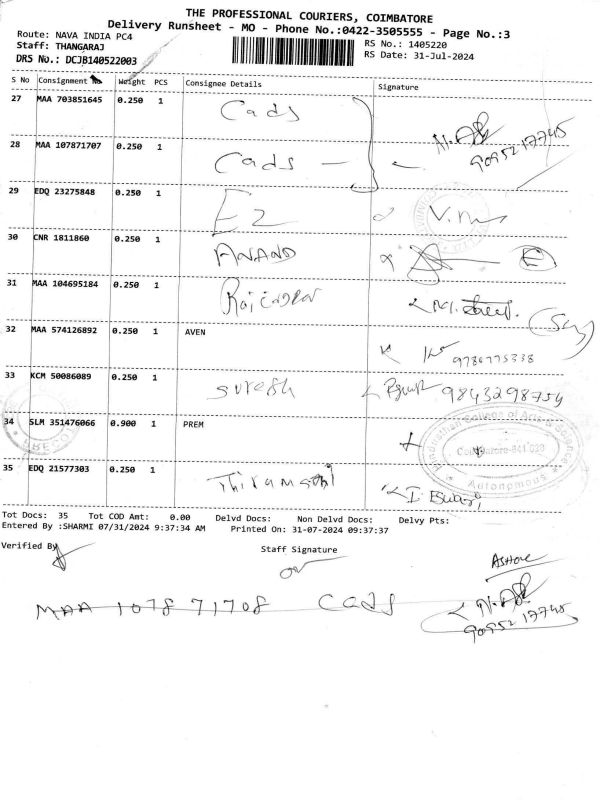 THE PROFESSIONAL COURIERS, COIMBATORE
Delivery Runsheet - MO - Phone No.:0422-3505555 - Page No.:3
Route: NAVA INDIA PC4
RS No.: 1405220
Staff: THANGARAJ
RS Date: 31-Jul-2024
DRS No.: DCJB140522003
S No Consignment No Weight PCS Consignee Details Signature
27 MAA 703851645 0.250 1 Cads
28 MAA 107871707 0.250 1 Cads
9095217745
29 EDQ 23275848 0.250 1 Ez
30 CNR 1811860 0.250 1 ANAND
31 MAA 104695184 0.250 1
32 MAA 574126892 0.250 1 AVEN
33 KCM 50086089 0.250 1 Suresh 9843298754
34 SLM 351476066 0.900 1 PREM
Coimbatore-641 020
Autonomous
35 EDQ 21577303 0.250 1
Tot Docs: 35 Tot COD Amt: 0.00 Delvd Docs: Non Delvd Docs: Delvy Pts:
Entered By :SHARMI 07/31/2024 9:37:34 AM Printed On: 31-07-2024 09:37:37
Verified By Staff Signature
ASHOK
MAA 107871708 Cads
9095217745